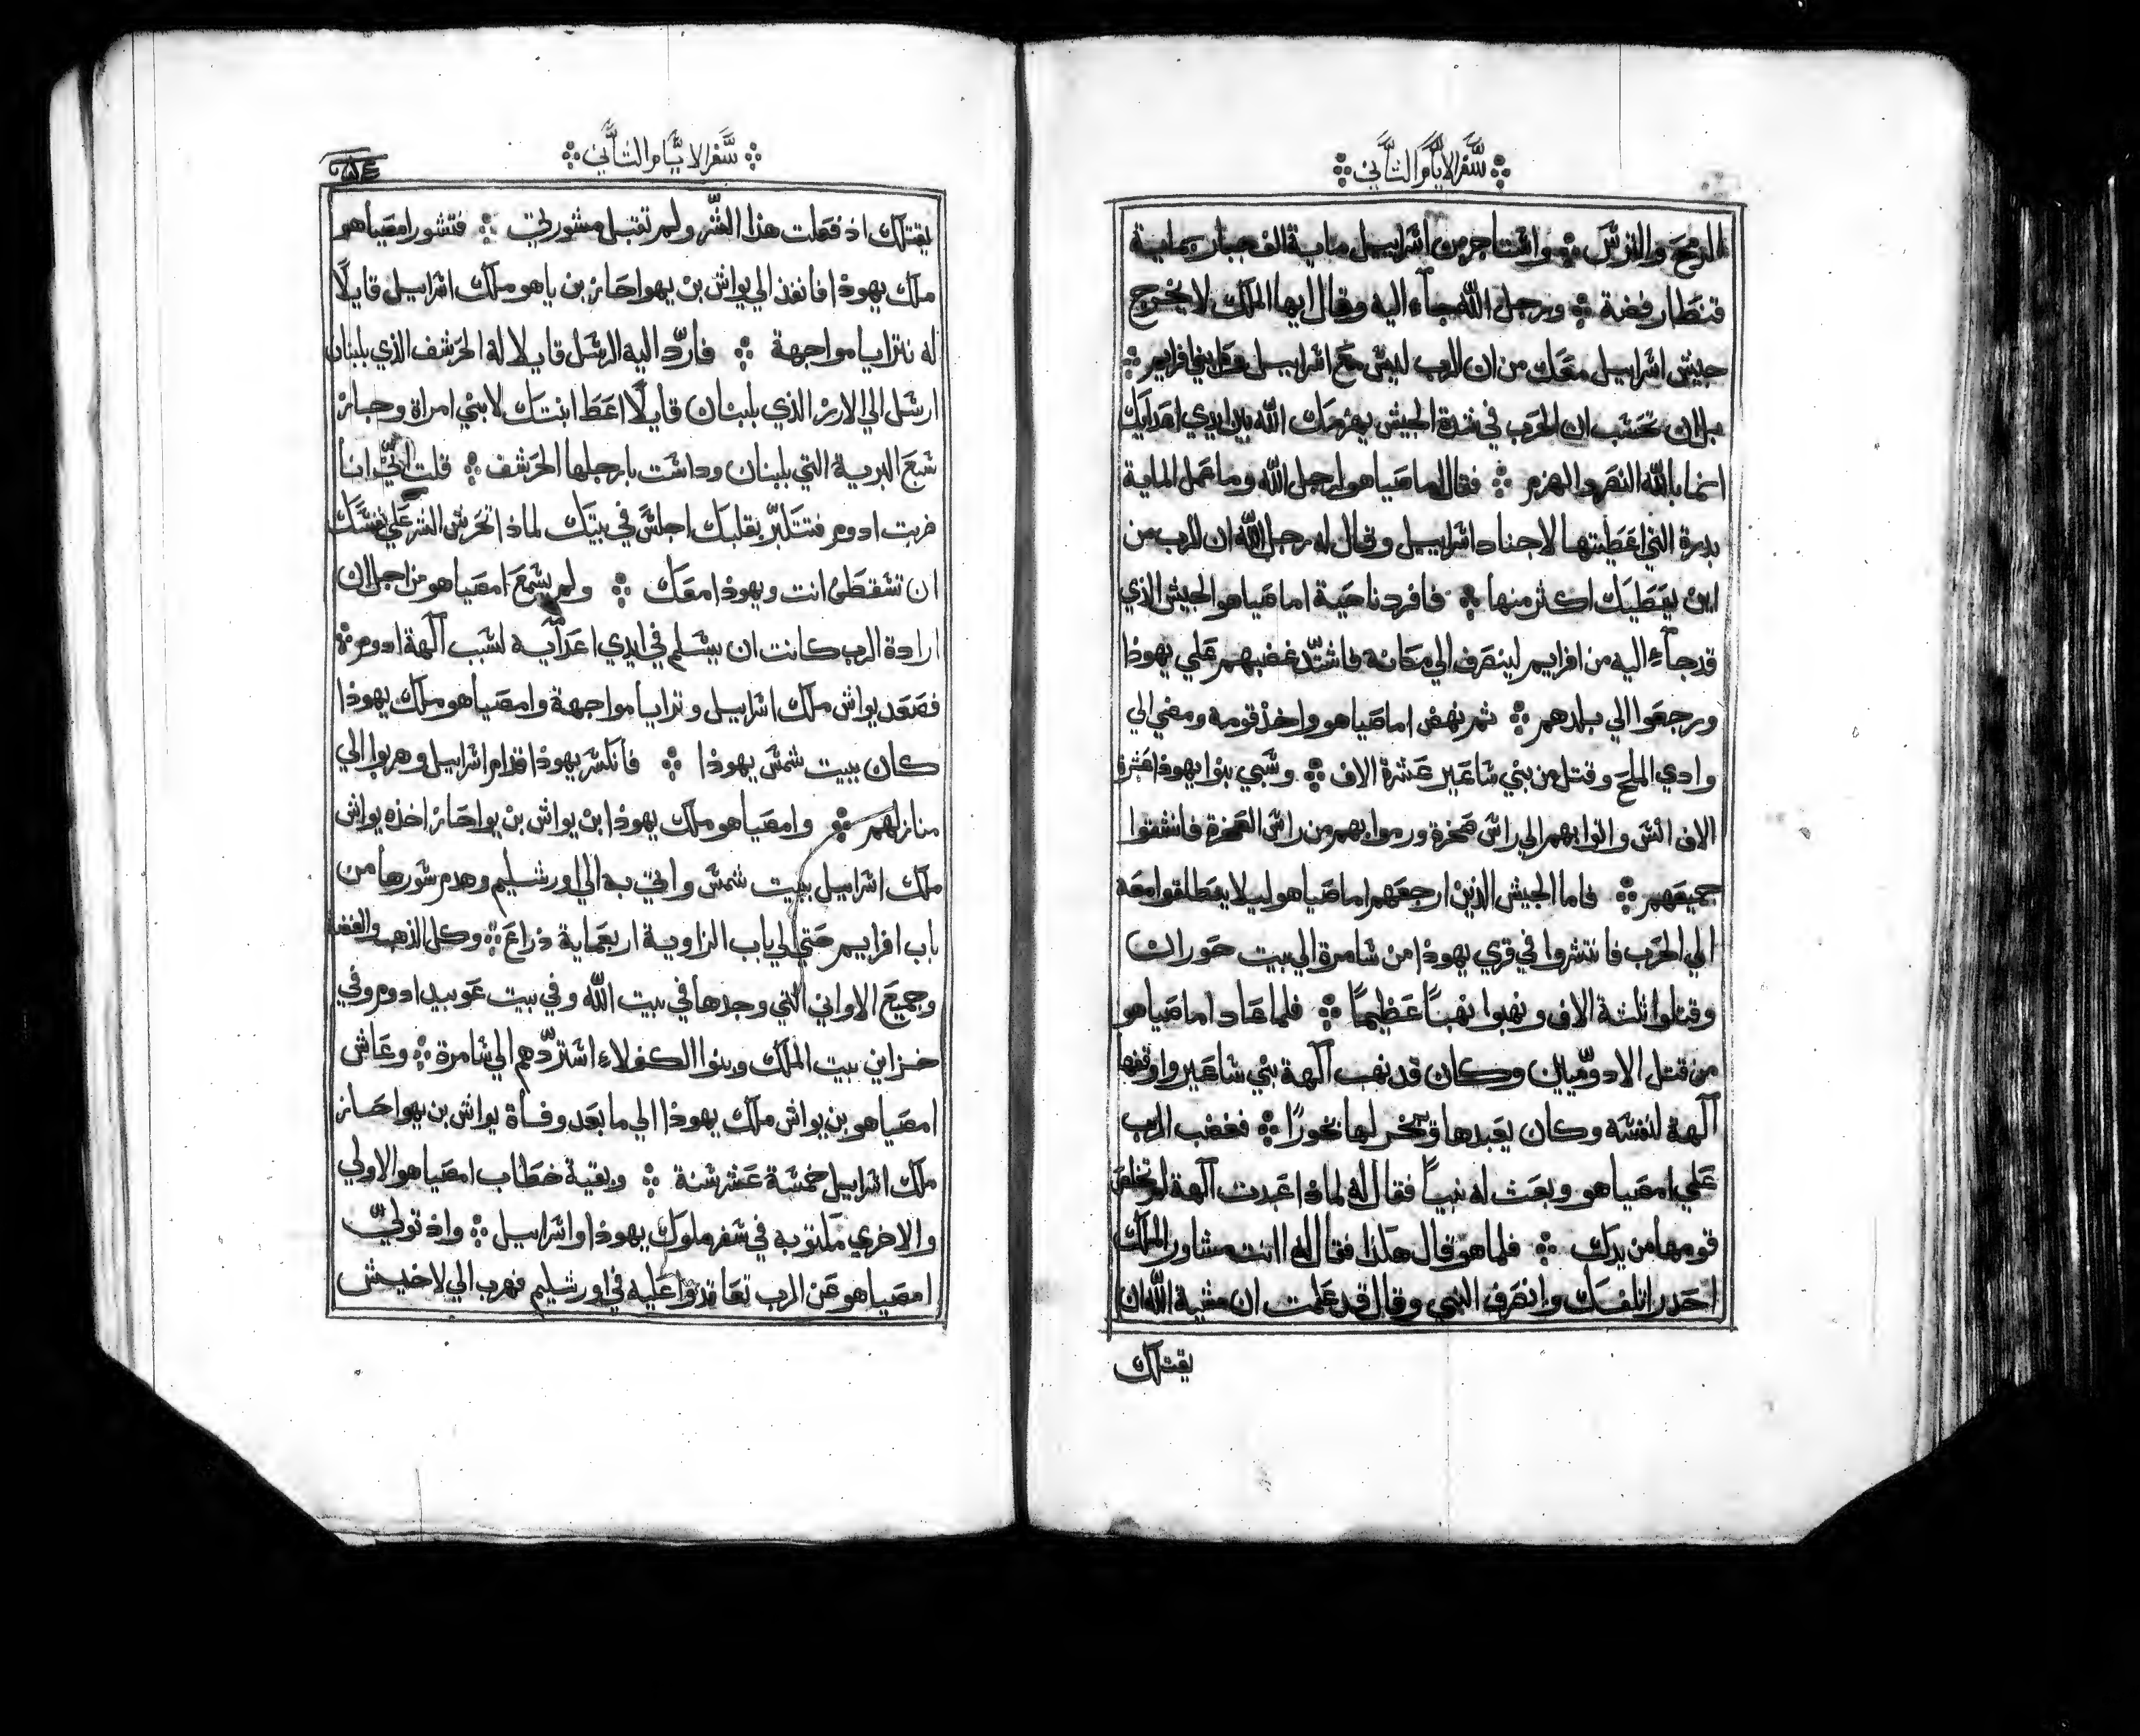 سفر الايام الثاني
الرمح والترس واستاجر من اسراييل ماية الف جبار بماية
قنطار فضة ورجل الله جاء اليه وقال ايها الملك لا يخرج
جيش اسراييل معك من ان الرب ليس مع اسراييل بني افرايم
بل ان تحسب ان الحرب في شدة الجيش يهزمك الله بين ايدي اعدايك
انما بالله النصر والهزم فقال اماصياهو لرجل الله وما عمل الماية
بدرة التي اعطيتها لاجناد اسراييل وقال له رجل الله ان للرب من
اين يعطيك اكثر منها فافرد ناحية اماصياهو الجيش الذي
قد جاء اليه من افراييم لينصرف الي مكانه فاشتد غضبهم علي يهوذا
ورجعوا الي بلدهم ثم نهض اماصياهو واخذ قومه ومضي الي
وادي الملح وقتل من بني ساعير عشرة الاف وسبي بنوا يهوذا عشرة
الاف انس واتوا بهم الي راس صخرة ورموا بهم من راس الصخرة فانشقوا
جميعهم فاما الجيش الذين ارجعهم اماصياهو ليلا ينطلقوا معه
الي الحرب فانتشروا في قري يهوذا من شامرة الي بيت حوران
وقتلوا ثلثة الاف ونهبوا نهبًا عظيمًا فلما عاد اماصياهو
من قتل الادوميين وكان قد نهب آلهة بني ساعير واوقفها
آلهة لنفسه وكان يعبدها ويبخر لها بخورًا فغضب الرب
علي امصياهو وبعث له نبيًا فقال له لماذا عبدت آلهة لم تخلص
قومها من يدك فلما هو قال هكذا فقال له اانت مشاور الملك
احدر اتلفك وانصرف النبي وقال قد علمت ان مشية الله ان
يقتلك
سفر الايام الثاني
يقتلك اذ فعلت هذا الشر ولم تقبل مشورتي فتشور امصياهو
ملك يهوذا فانفذ الي يواش بن يهواحاز بن ياهو ملك اسراييل قايلًا
له نترايا مواجهة فارد اليه الرسل قايلا له الحرشف الذي بلبنان
ارسل الي الارز الذي بلبنان قايلًا اعط ابنتك لابني امراة وجاز
سبع البرية التي بلبنان وداست بارجلها الحرشف قلت اني انا
ضربت ادوم فتتكبر بقلبك اجلس في بيتك لماذا تحرش الشر علي نفسك
ان تسقط انت ويهوذا معك ولم يسمع امصياهو من اجل ان
ارادة الرب كانت ان يسلم في ايدي اعدايه لسبب آلهة ادوم
فصعد يواش ملك اسراييل وترايا مواجهة وامصياهو ملك يهوذا
كان ببيت شمس يهوذا فانكسر يهوذا قدام اسراييل وهربوا الي
منازلهم وامصياهو ملك يهوذا بن يواش بن يواحاز اخذه يواش
ملك اسراييل ببيت شمس واتي به الي اورشليم وهدم سورها من
باب افراييم حتي الي باب الزاوية اربعماية ذراع وكل الذهب والفضة
وجميع الاواني التي وجدها في بيت الله وفي بيت عوبيد ادوم وفي
خزاين بيت الملك وبنوا الكفولاء استردهم الي شامرة وعاش
امصياهو بن يواش ملك يهوذا الي ما بعد وفاة يواش بن يهواحاز
ملك اسراييل خمسة عشر سنة وبقية خطاب امصياهو الاولي
والاخري مكتوبه في سفر ملوك يهوذا واسراييل واذ تولي
امصياهو عن الرب تعاقدوا عليه في اورشليم فهرب الي لاخيش